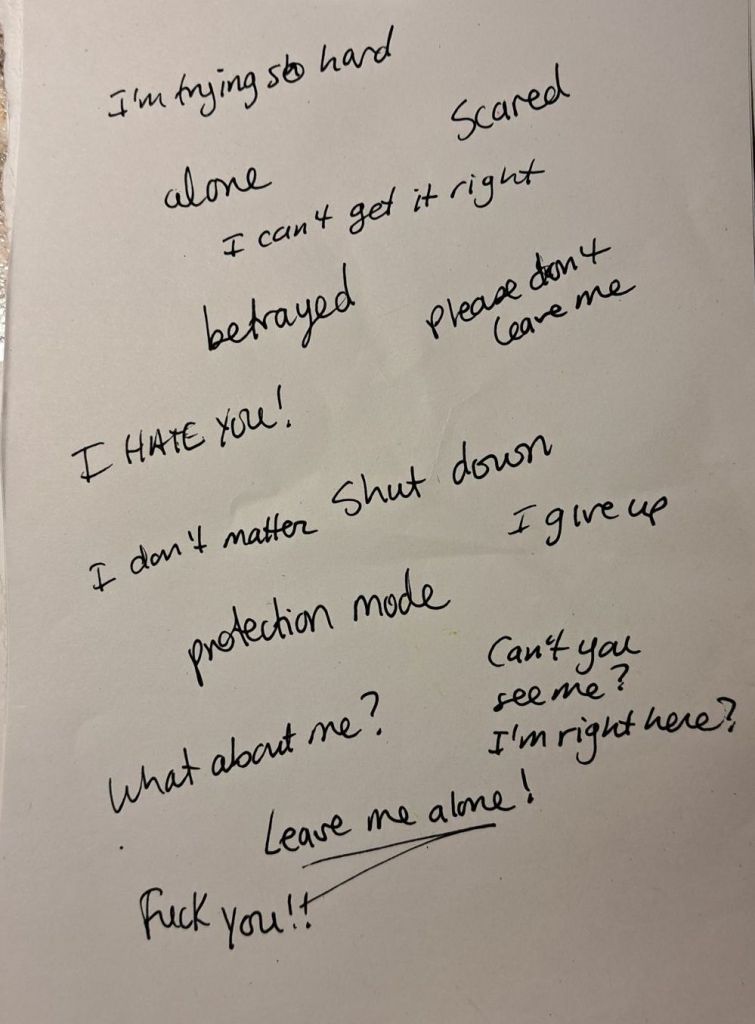 I'm trying so hard
Scared
alone
I can't get it right
betrayed
please don't
leave me
I HATE YOU!
Shut down
I don't matter
I give up
protection mode
Can't you
see me?
I'm right here?
What about me?
Leave me alone!
Fuck you!!